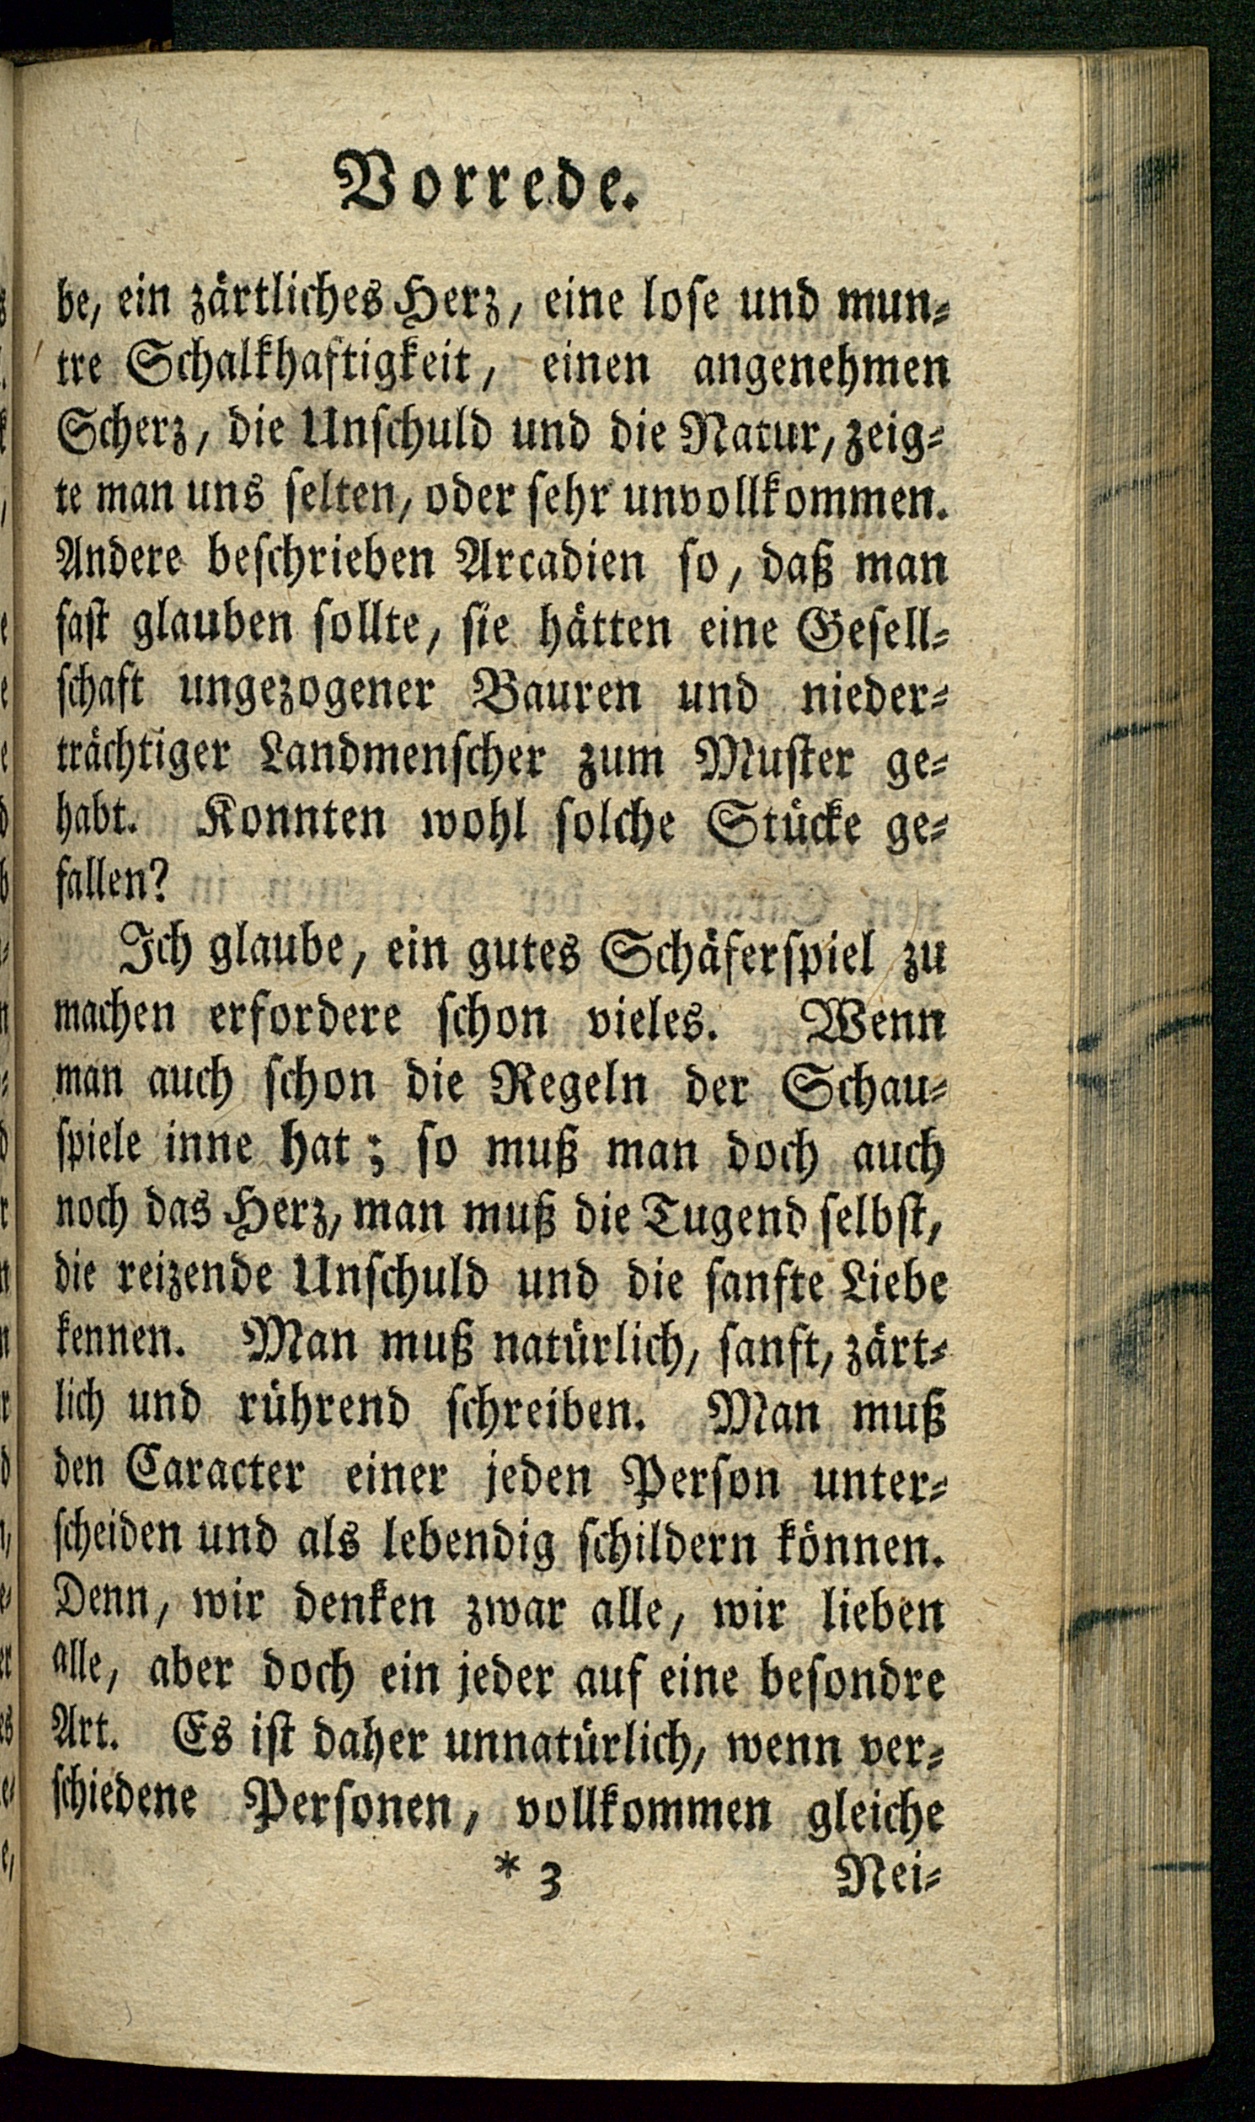 Vorrede.
be, ein zärtliches Herz, eine lose und mun-
tre Schalkhaftigkeit, einen angenehmen
Scherz, die Unschuld und die Natur, zeig-
te man uns selten, oder sehr unvollkommen.
Andere beschrieben Arcadien so, daß man
fast glauben sollte, sie hätten eine Gesell-
schaft ungezogener Bauren und nieder-
trächtiger Landmenscher zum Muster ge-
habt. Konnten wohl solche Stücke ge-
fallen?
Ich glaube, ein gutes Schäferspiel zu
machen erfordere schon vieles. Wenn
man auch schon die Regeln der Schau-
spiele inne hat; so muß man doch auch
noch das Herz, man muß die Tugend selbst,
die reizende Unschuld und die sanfte Liebe
kennen. Man muß natürlich, sanft, zärt-
lich und rührend schreiben. Man muß
den Caracter einer jeden Person unter-
scheiden und als lebendig schildern können.
Denn, wir denken zwar alle, wir lieben
alle, aber doch ein jeder auf eine besondre
Art. Es ist daher unnatürlich, wenn ver-
schiedene Personen, vollkommen gleiche
* 3 Nei-